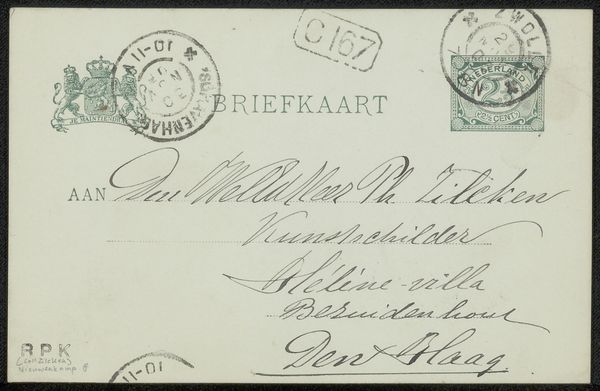 C 167
ZWOLLE
NEDERLAND
2½
(2½ CENT)
'S-GRAVENHAGE
10-11
JE MAINTIENDRAI
BRIEFKAART
AAN Den WelEdHeer Ph. Zilcken
Kunstschilder
Hélène-villa
Bezuidenhout
Den Haag
RPK
Nieuwenkamp. 8
10-11